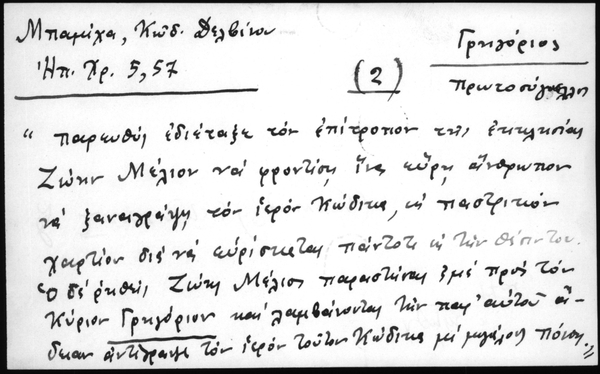 Μπαμίχα, Κώδ. Δελβίνου
Ἠπ. Χρ. 5, 57
(2)
Γρηγόριος
πρωτοσύγκελλος
" παρευθὺς ἐδιέταξε τὸν ἐπίτροπον τῆς ἐκκλησίας
Ζώην Μέλιον νὰ φροντίσῃ ἵνα εὕρῃ ἄνθρωπον
νὰ ξαναγράψῃ τὸν ἱερὸν Κώδικα, εἰς παστρικὸν
χαρτίον διὰ νὰ εὑρίσκεται πάντοτε εἰς τὴν θέσιν του.
Ὁ δὲ ῥηθεὶς Ζώης Μέλιος παραστήσας ἐμὲ πρὸς τὸν
Κύριον Γρηγόριον καὶ λαμβάνοντας τὴν παρ' αὐτοῦ ἄ-
δειαν ἀντέγραψα τὸν ἱερὸν τοῦτον Κώδικα μὲ μεγάλους πόνους "